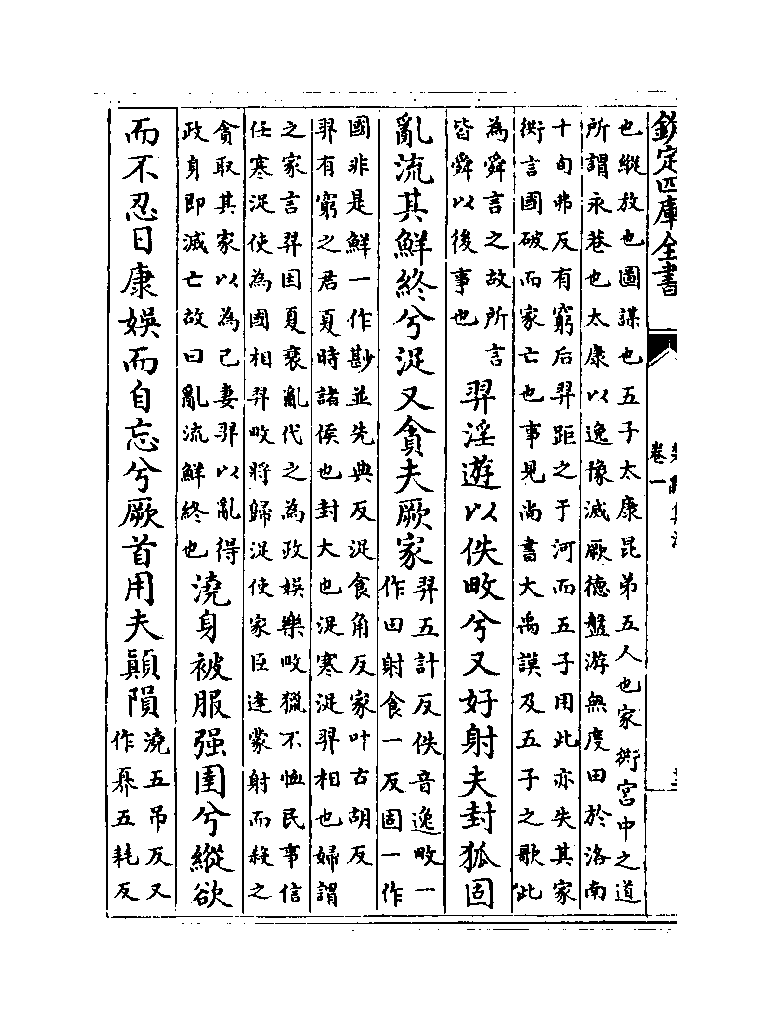 欽定四庫全書
卷一
也縱放也圖謀也五子太康昆弟五人也家衖宮中之道
所謂永巷也太康以逸豫滅厥德盤游無度田於洛南
十旬弗反有窮后羿距之于河而五子用此亦失其家
衖言國破而家亡也事見尚書大禹謨及五子之歌此
為舜言之故所言
皆舜以後事也
羿淫遊以佚畋兮又好射夫封狐固
亂流其鮮終兮浞又貪夫厥家
羿五計反佚音逸畋一
作田射食一反固一作
國非是鮮一作尠並先典反浞食角反家叶古胡反
羿有窮之君夏時諸侯也封大也浞寒浞羿相也婦謂
之家言羿因夏衰亂代之為政娛樂畋獵不恤民事信
任寒浞使為國相羿畋將歸浞使家臣逄蒙射而殺之
貪取其家以為己妻羿以亂得
政身即滅亡故曰亂流鮮終也
澆身被服强圉兮縱欲
而不忍日康娛而自忘兮厥首用夫顚隕
澆五吊反又
作奡五耗反